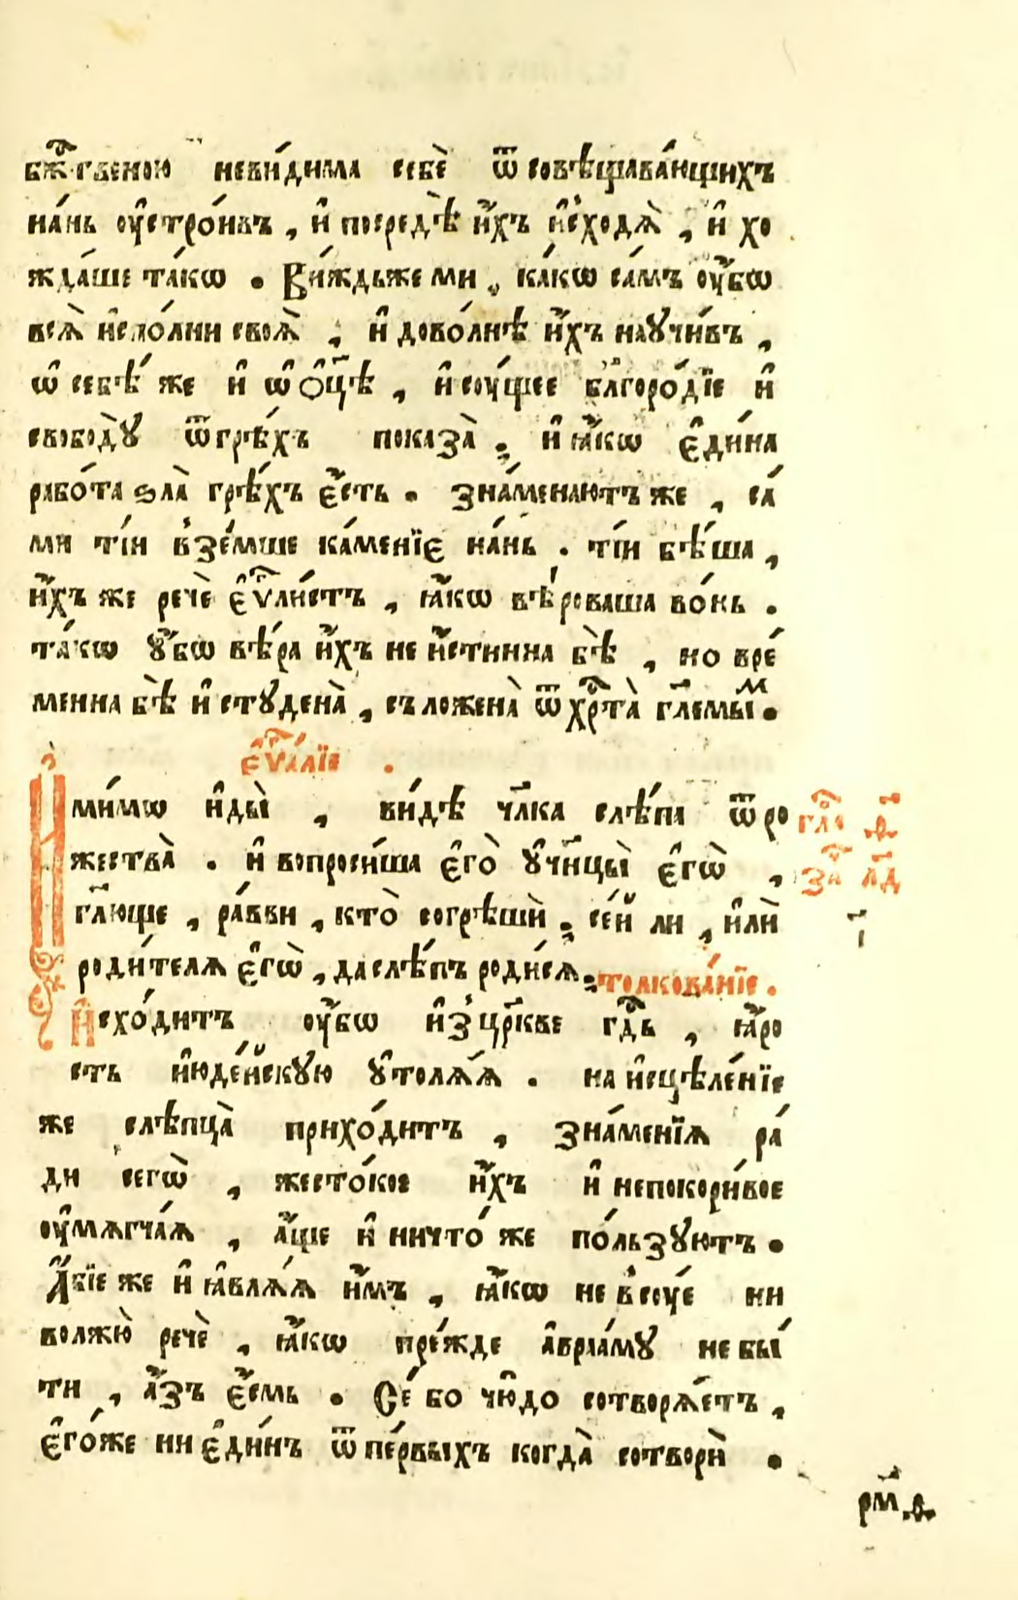 бж҃твеною неви́дима себѐ ѿ совѣщава́ющихъ
на́нь оу҆стро́ивъ , и҆ посредѣ̀ и҆́хъ и҆сходѧ̀ , и҆ хо
жда́ше та́кѡ . Ви́ждь же ми , ка́кѡ са́мъ оу҆́бѡ
всѧ̀ и҆спо́лни своѧ̀ , и҆ дово́лнѣ и҆́хъ научи́въ ,
ѡ҆ себѣ́ же и҆ ѡ҆ ѻ҆ц҃ѣ , и҆ соу́щее бл҃горо́дїе и҆
свобо́дꙋ ѿ грѣ́хъ показа̀ , и҆ ꙗ҆́кѡ є҆ди́на
рабо́та ѕла̀ грѣ́хъ є҆́сть . зна́менаютъ же , са́
ми ті́и взе́мше ка́менїє на́нь . ті́и бѣ́ша ,
и҆́хъ же речѐ є҆ѵ҃ли́стъ , ꙗ҆́кѡ вѣ́роваша во́нь .
та́кѡ ᲂу҆́бѡ вѣ́ра и҆́хъ не и҆́стинна бѣ̀ , но вре́
менна бѣ̀ и҆ стꙋдена̀ , съложена̀ ѿ хрⷭ҇та̀ гл҃емыⷨ .
є҆ѵⷢ҇лїе .
И҆ мимо́ и҆ды́й , ви́дѣ чл҃ка слѣ́па ѿ ро
жества̀ . и҆ вопроси́ша є҆го̀ ᲂу҆чн҃цы̀ є҆гѡ̀ ,
гл҃юще , ра́вви , кто̀ согрѣшѝ , се́й ли , и҆лѝ
роди́телѧ є҆гѡ̀ , да слѣ́пъ роди́сѧ , толкова́нїе .
И҆схо́дитъ оу҆́бѡ и҆з̾ цр҃кве гдⷭ҇ь , ꙗ҆́ро
сть и҆юде́йскꙋю ᲂу҆толѧ́ѧ . на и҆сцѣле́нїе
же слѣпца̀ прихо́дитъ , зна́менїѧ ра́
ди сегѡ̀ , жесто́кое и҆́хъ и҆ непокори́вое
оу҆мѧгча́ѧ , а҆́ще и҆ ничто́ же по́льзꙋютъ .
А҆́бїе же и҆ ꙗ҆влѧ́ѧ и҆́мъ , ꙗ҆́кѡ не всоу́е ни
волжю̀ речѐ , ꙗ҆́кѡ пре́жде а҆враа́мꙋ не бы́
ти , а҆́зъ є҆́смь . Се́ бо чю́до сотворѧ́етъ ,
є҆го́же ни є҆ди́нъ ѿ пе́рвыхъ когда̀ сотворѝ .
гла҃ ѳ҃
за҃ лд҃
і҃
рм҃в.